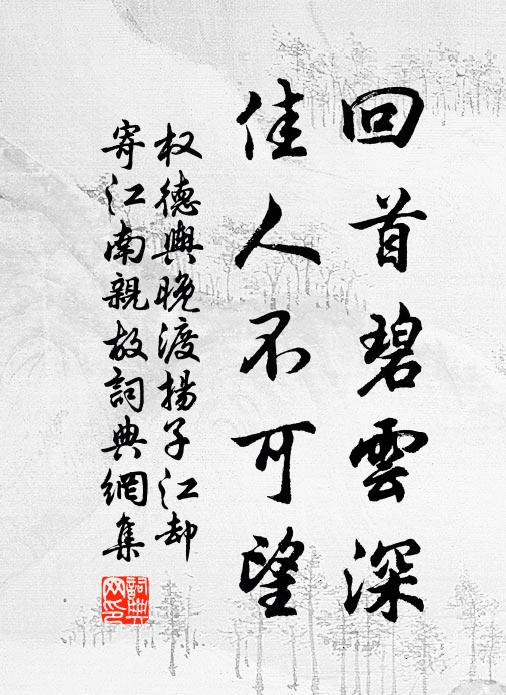 回首碧雲深
佳人不可望
权德輿晚渡揚子江却
寄江南親故詞典網集
詞典
网印